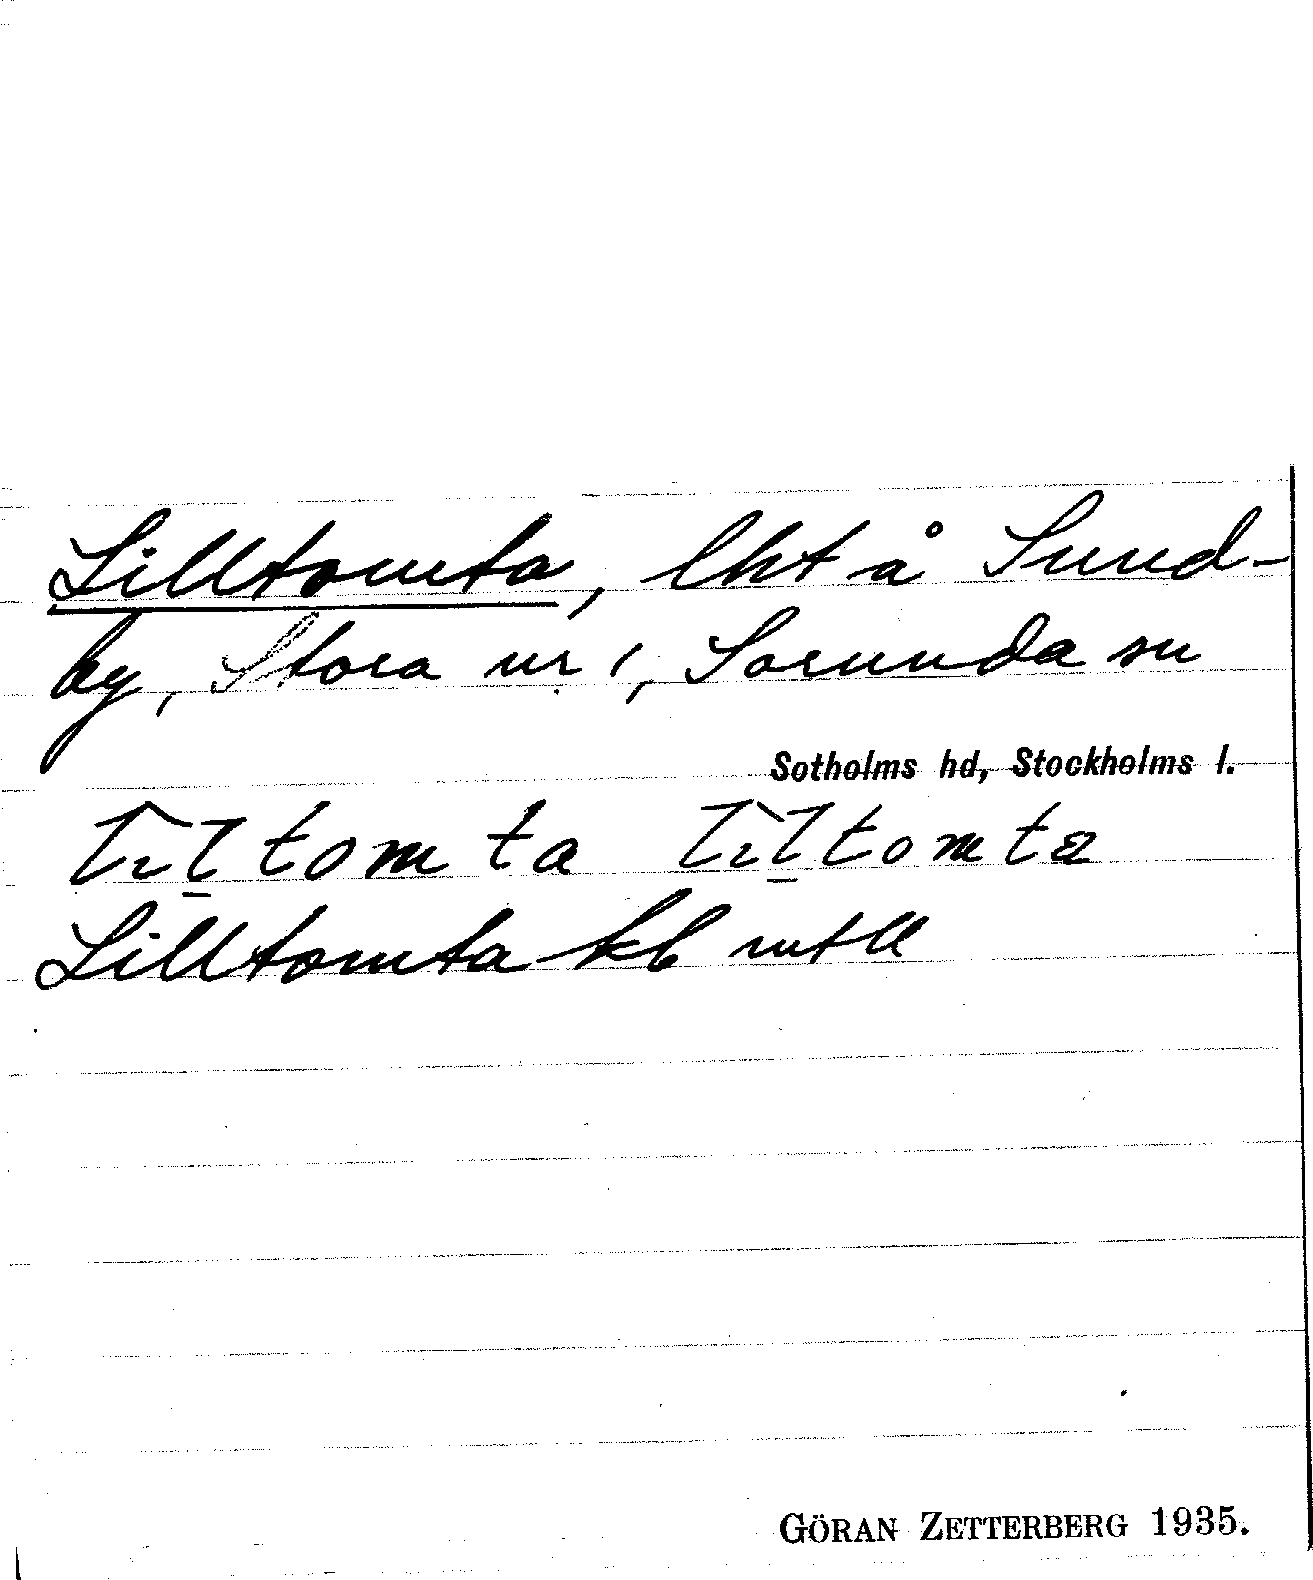 Lilltomta, lht å Sund-
by, Stora nr 1, Sorunda sn
Sotholms hd, Stockholms l.
Lilltomta kb mtll
GÖRAN ZETTERBERG 1935.